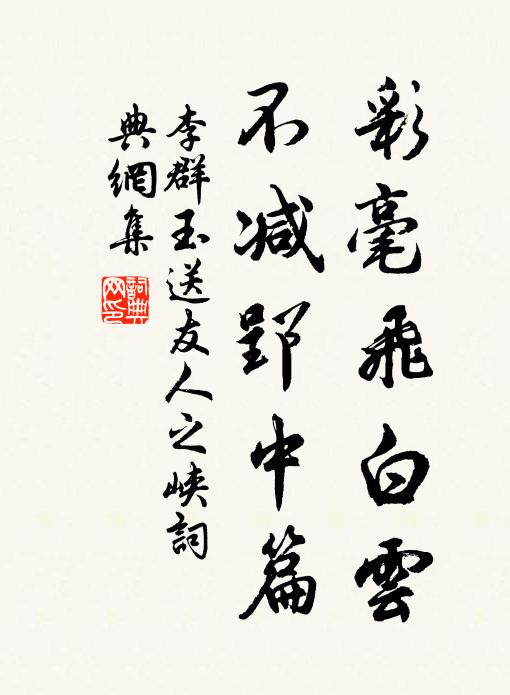 彩毫飛白雲
不減郢中篇
李群玉送友人之峽詞
典網集
詞典網印